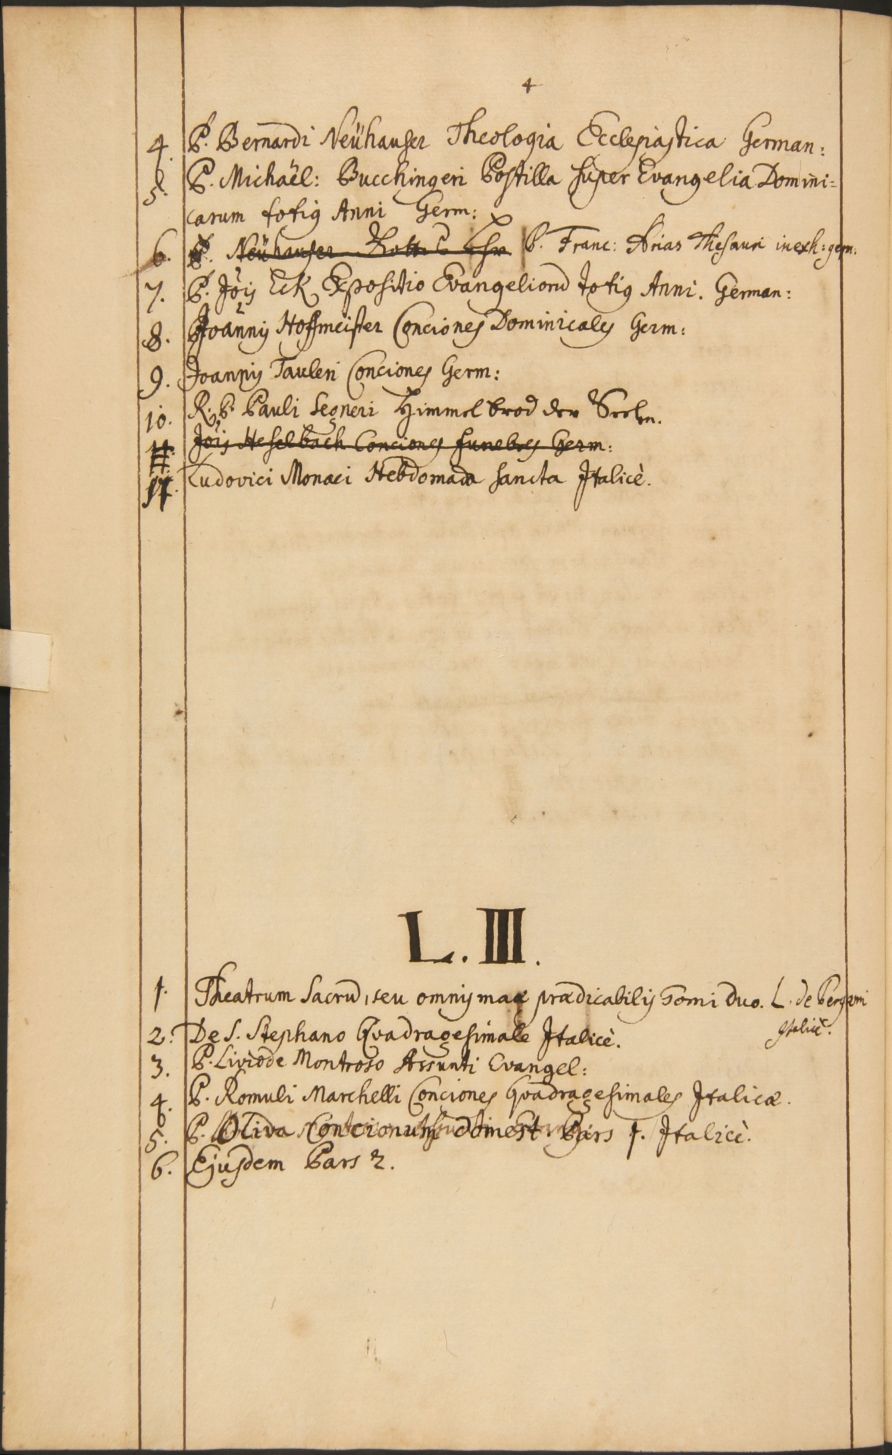 4
4. P. Bernardi Neühauser Theologia Ecclesiastica German:
5. P. Michaël: Bucchingeri Postilla super Evangelia Domini=
carum totig Anni Germ:
6. P. Neühauser P. Franc: Arias Thesauri inexh: germ:
7. P. Jöis Eck Expositio Evangeliorū totig Anni. German:
8. Joannis Hoffmeister Conciones Dominicales Germ:
9. Joannis Tauleri Conciones Germ:
10. R. P. Pauli Segneri Himmel brod der Seelen.
11. Jöis Heselbach Conciones funebres Germ:
11. Ludovici Monaci Hebdomada Sancta Italicè.
L. III.
1. Theatrum Sacrū, seu omnis mag prædicabilis Tomi Duo. L. de Bergami
Italicè.
2. De S. Stephano Qvadragesimale Italicè.
3. P. Livio de Montroso Assunti Evangel:
4. P. Romuli Marchelli Conciones Qvadragesimales Italicæ.
5. P. Oliva Concionum domest Pars 1. Italicè.
6. Ejusdem Pars 2.